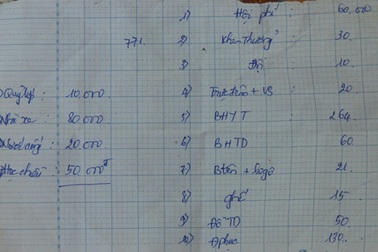 1) Hội phí : 60.000
771. 2) Khen thưởng : 30
3) Đội : 10
Quỹ lớp : 10.000 4) Trực trùm + VS : 20
Nhà xe : 80.000 5) BHYT : 264
Nước uống : 20.000 6) BHTD 60
Học chiều : 50 000đ 7) Btên + Sogô : 21
8) ghế : 15
9) Đồ TD 50
10) Đphục : 130